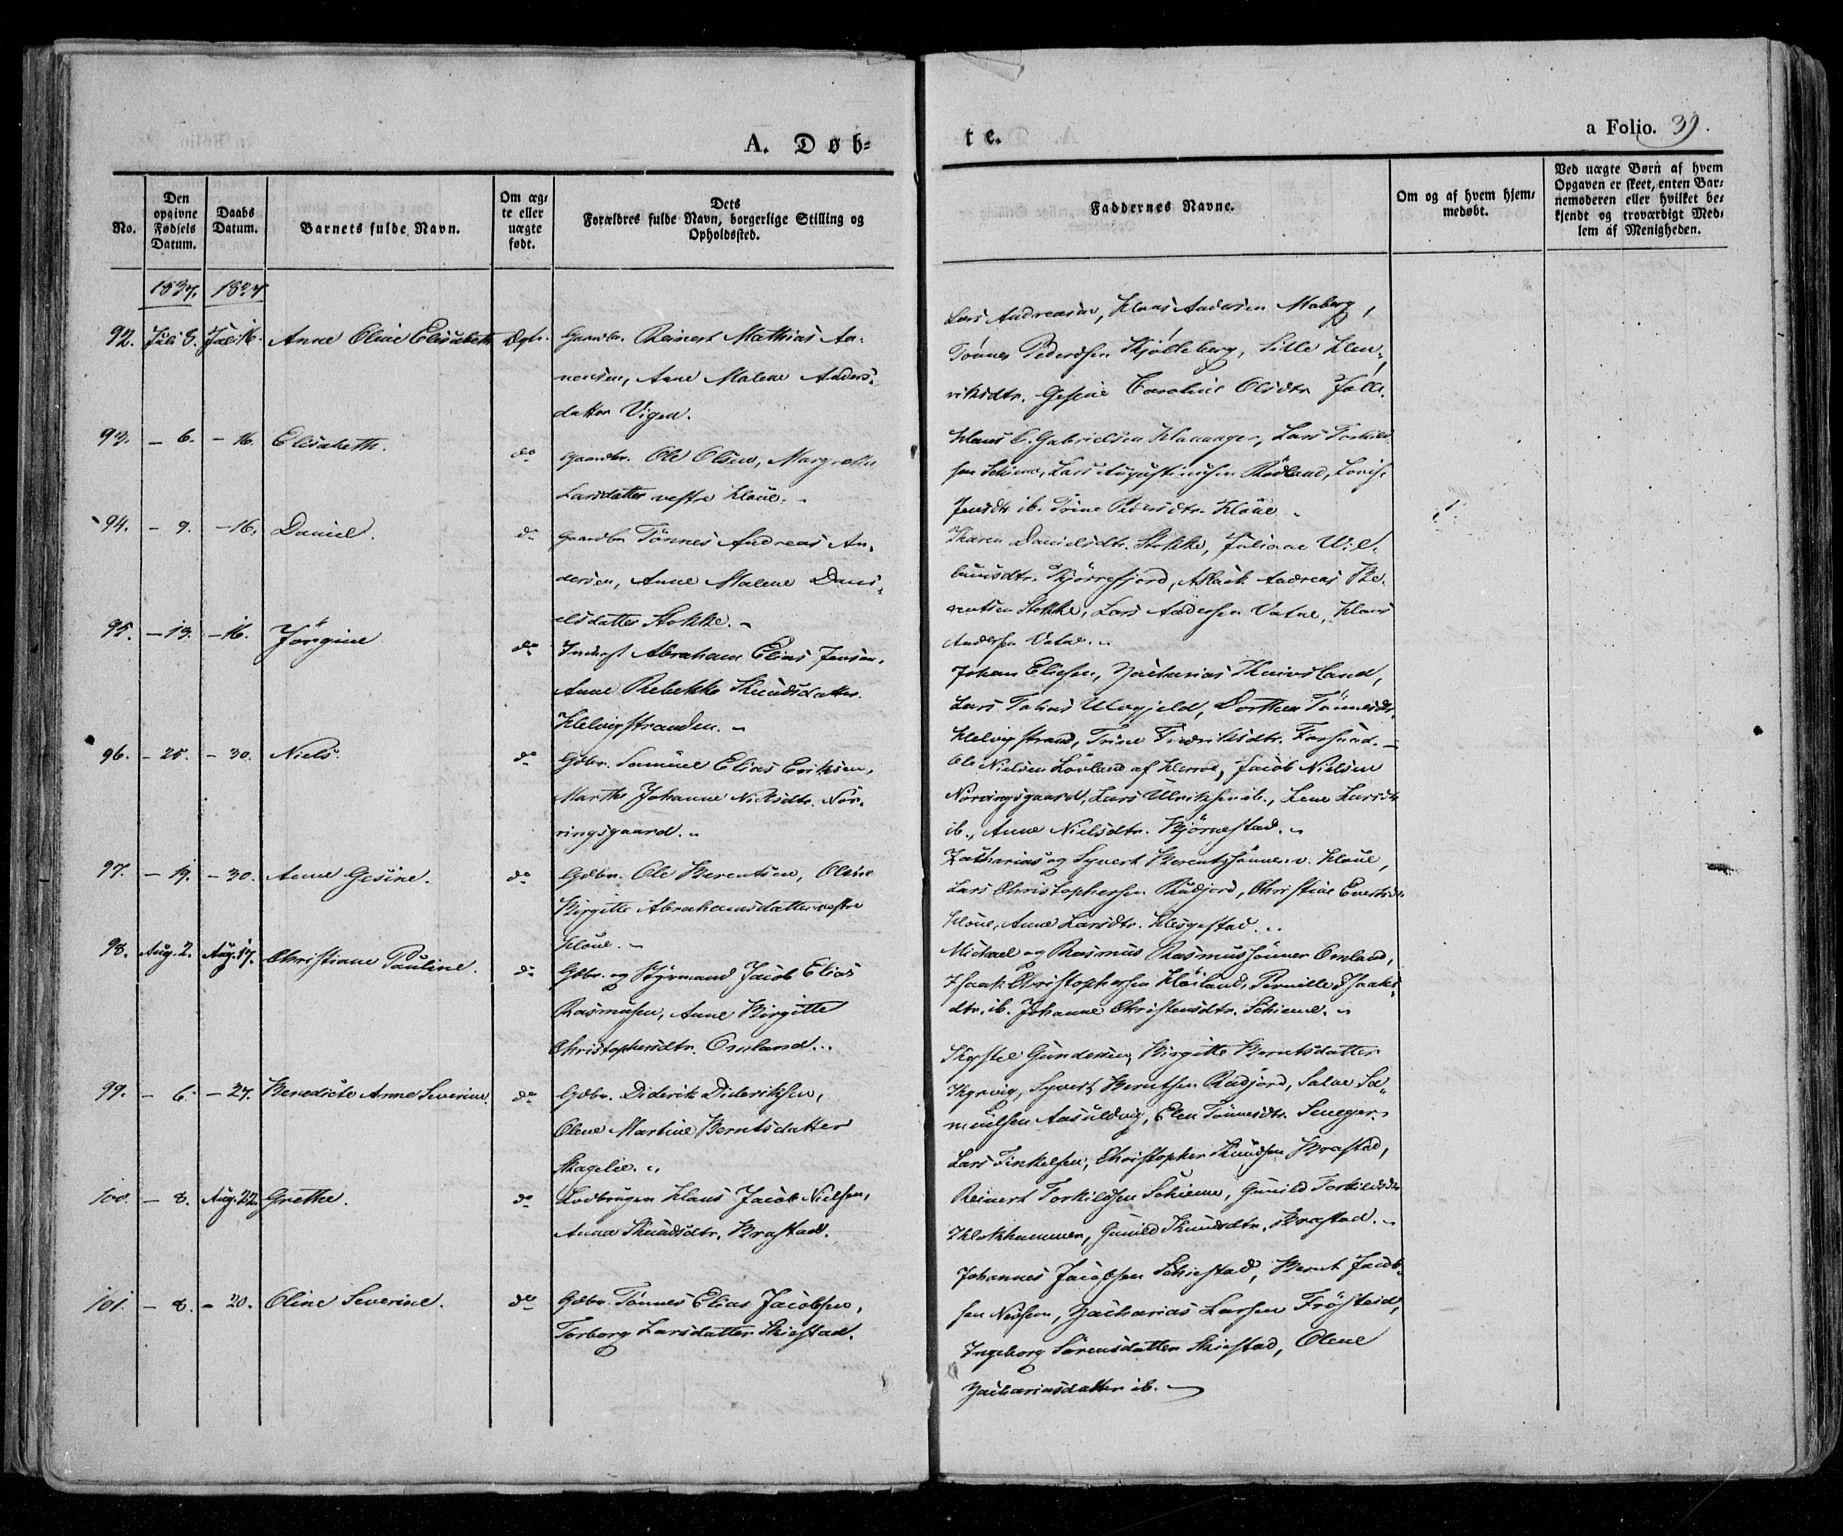 A. Døb=
te.
a Folio. 39.
No.
Den opgivne Fødsels Datum.
Daabs Datum.
Barnets fulde Navn.
Om ægte eller uægte født.
Dets
Forældres fulde Navn, borgerlige Stilling og
Opholdssted.
Faddernes Navne.
Om og af hvem hjem=
medøbt.
Ved uægte Børn af hvem
Opgaven er skeet, enten Bar=
nemoderen eller hvilket be=
kjendt og troværdigt Med=
lem af Menigheden.
1837. 1837
92. Juli 3. Juli 16. Anne Oline Elisabeth Ægte. Gaardbr. Reinert Mathias
Anne Malene Anders=
datter Vigen.
Lars Andreasen, Klaus Andersen Moberg,
Tønnes Pedersen Kjølleberg, Sille Hen=
riksdtr. Gesine Caroline Olsdtr.
93. – 6. – 16. Elisabeth. do Gaardbr. Ole Olsen, Margrethe
Larsdatter vestre Kloue.
Klaus O. Gabrielsen Lars Torkild=
sen Schieme, Lars Augustinusen Rødland,
Jensdtr ib. Trine Pedersdtr. Kloue
94. – 9. – 16. Daniel. do Gaardbr Tønnes Andreas An=
dersen, Anne Malene Dani=
elsdatter Stokke.
Karen Danielsdtr. Stokke, Juliane
Aslak Andreas Be=
rentsen Stokke, Lars Andersen Vatne, Klaus
Andersen Vatne.
95. – 13. – 16. Jørgine do Inderst Abraham Elias Jensen,
Anne Rebekka Knudsdatter
Helvigstranden.
Johan Eliesen, Zacharias
Lars Tobias Dorthea Tønnesdtr.
Helvigstrand, Trine Fredriksdtr. Farsund.
96. – 25. – 30. Niels. do Gdbr. Samuel Elias Eriksen,
Marthe Johanne Nielsdtr. Nør=
ringsgaard.
Ole Nielsen Lövland af Herred, Jacob Nielsen
Nørvingsgaard, Lars Ulriksen ib., Lene Larsdtr
ib., Anne Nielsdtr. Bjørnestad.
97. – 19. – 30. Anne Gesine. do Gdbr. Ole Berentsen, Olene
Birgitte Abrahamsdatter vestre
Kloue.
Zacharias og Syvert Berentssønner v. Kloue,
Lars Christophersen Rudjord, Christine Evertsdtr
Kloue, Anne Larsdtr.
98. Aug. 2. Aug. 17. Christiane Pauline. do Gdbr. og Styrmand Jacob Elias
Rasmusen, Anne Birgitte
Christophersdtr. Omland.
Michael og Rasmus Rasmussønner Omland,
Isaak Christophersen Pernille Isaaks=
dtr. ib. Johanne Christensdtr. Schieme.
99. – 6. – 27. Benedicte Anne Severine. do Gdbr. Diderik Dideriksen,
Olene Martine Berntsdatter
Skagelie.
Gundersen, Birgitte Berntsdatter
Syvert Berntsen Rudjord, Salve Sa=
muelsen Aasuldvig, Elen Tønnesdtr.
100. – 8. Aug. 22 Grethe. do Lodbruger Klaus Jacob Nielsen,
Anna Knudsdtr. Brastad.
Lars Tinkelsen, Christopher Knudsen Brastad,
Reinert Torkildsen Schieme, Gunild Torkildsdtr
Klokhammer, Gunild Knudsdtr. Brastad.
101. – 8. – 20. Oline Severine. do Gdbr. Tønnes Elias Jacobsen,
Torborg Larsdatter Skiestad.
Johannes Jacobsen Schiestad, Bernt Jacob=
sen Zacharias Larsen Frøsteid,
Ingeborg Sørensdatter Skiestad, Olene
Zachariasdatter ib.